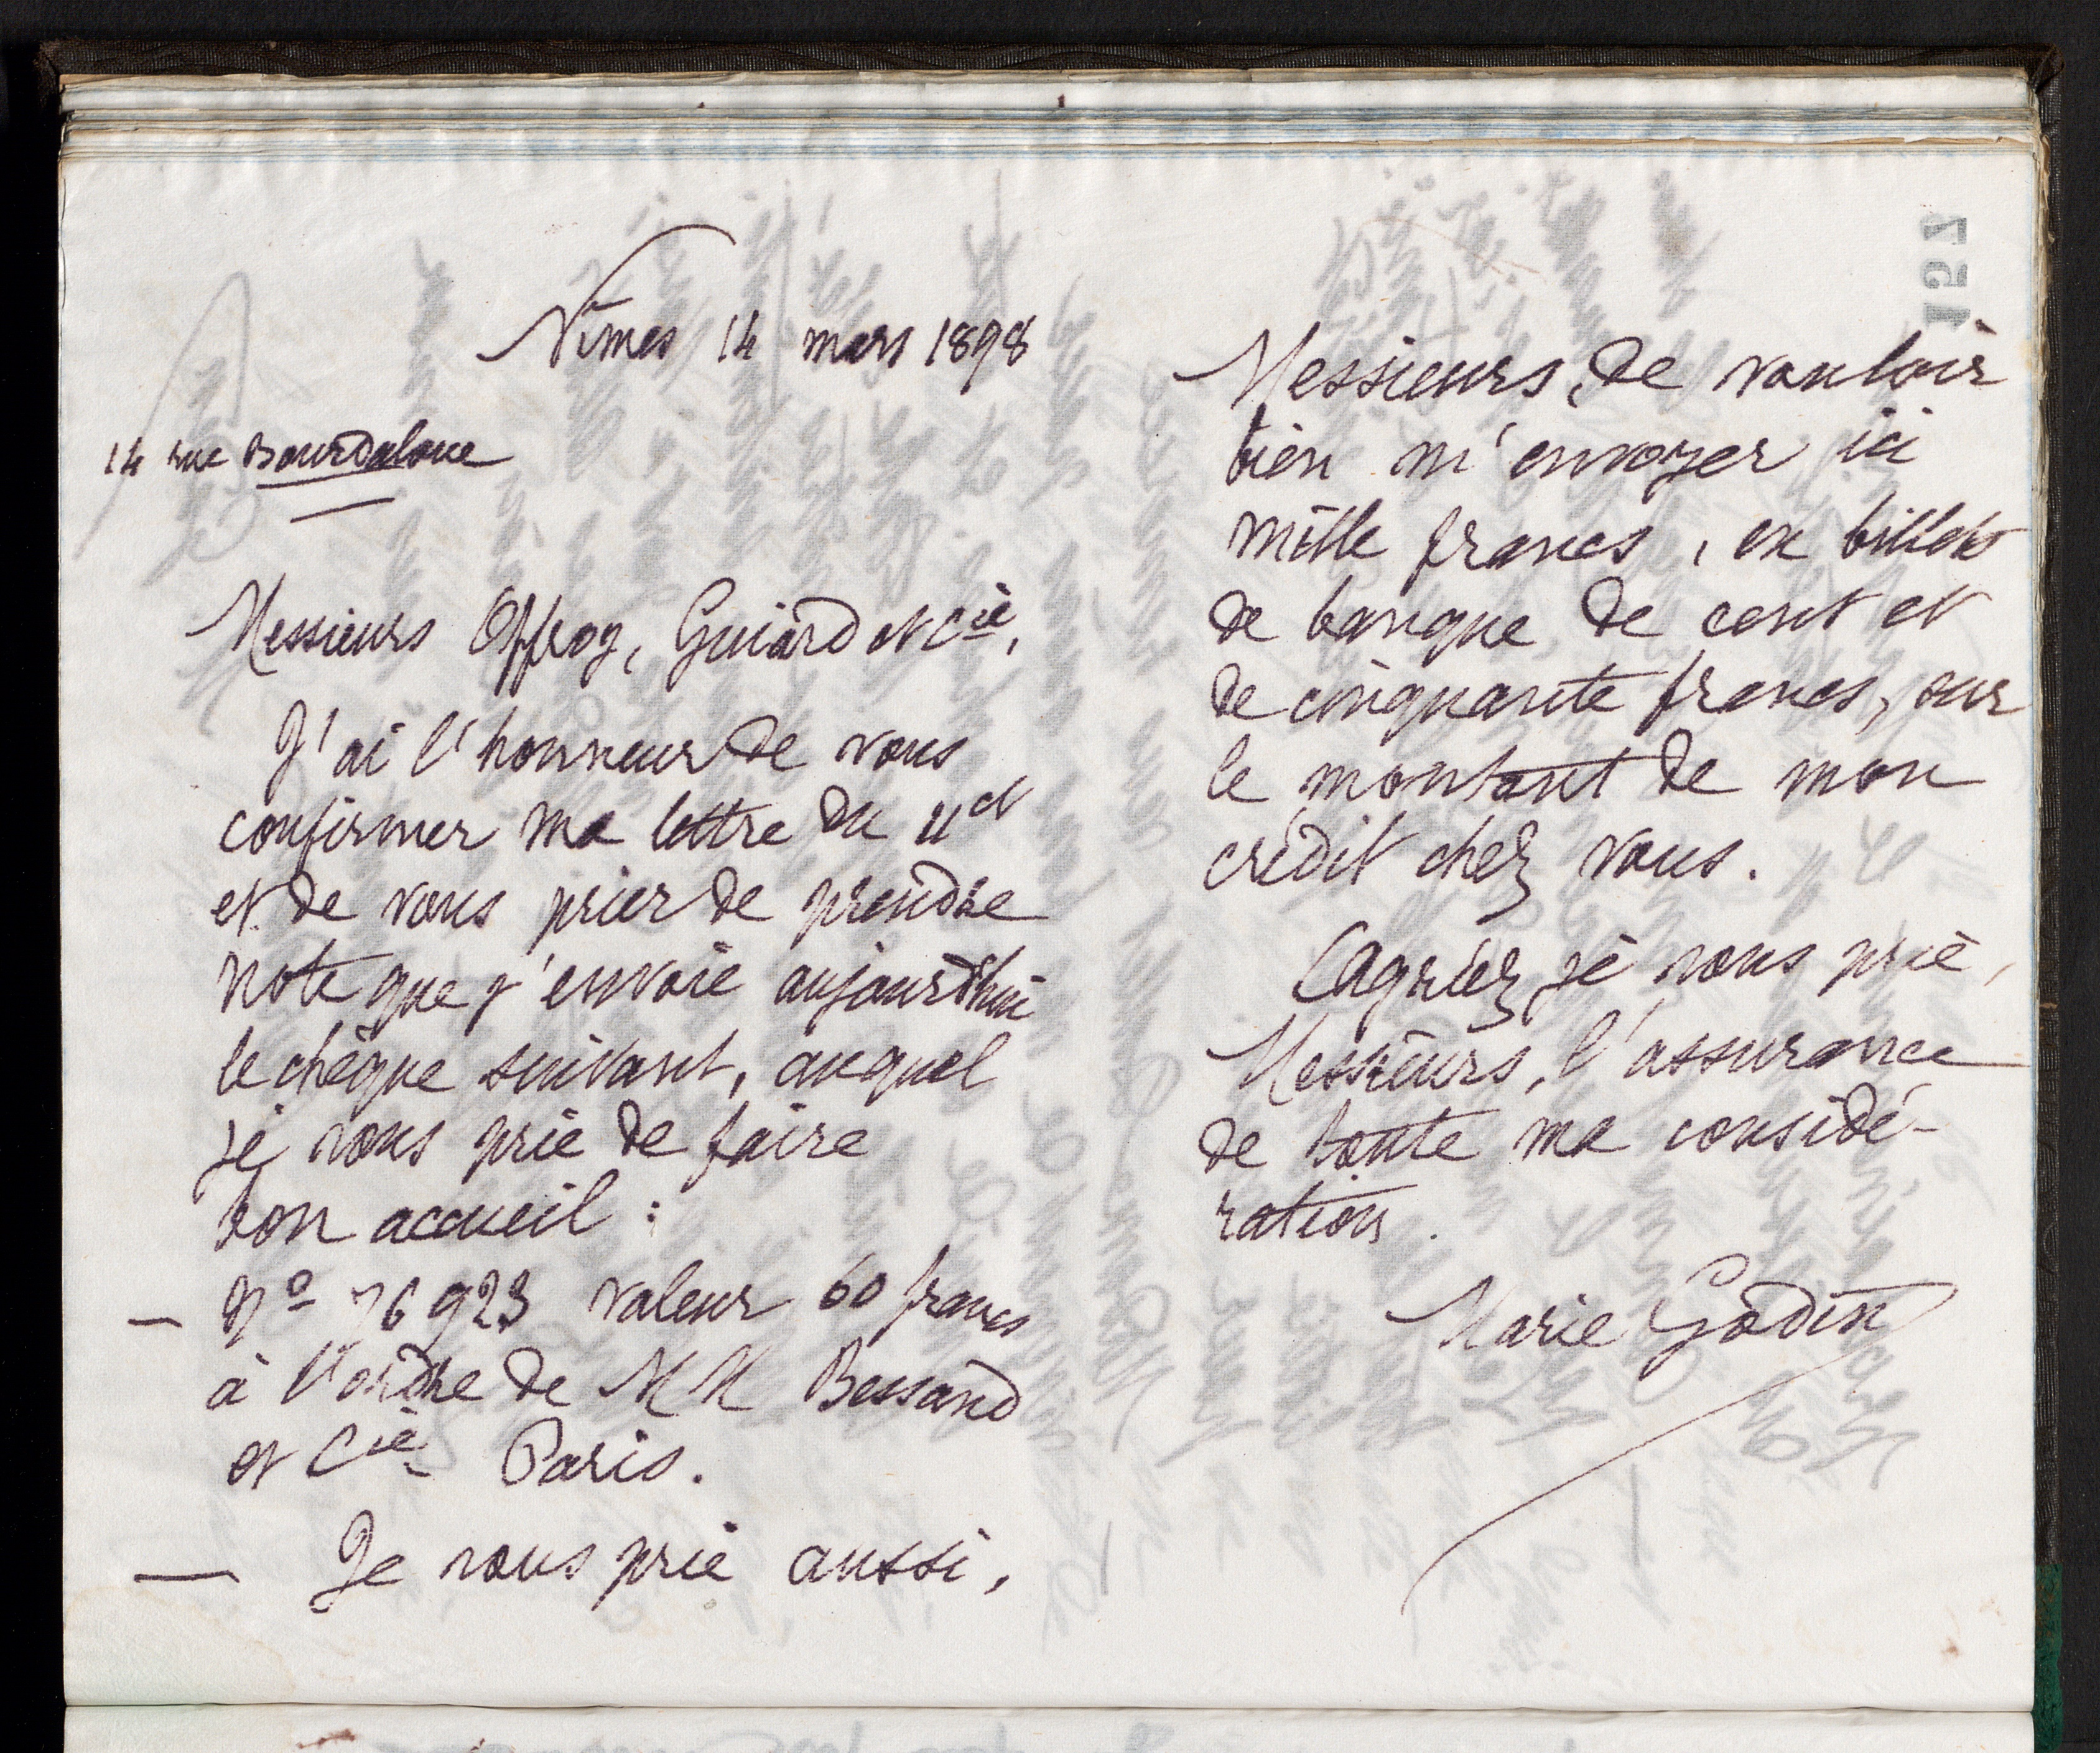 Nîmes 14 mars 1898
14 rue Bourdaloue
Messieurs Offroy, Guiard et Cie,
J'ai l'honneur de vous
confirmer ma lettre du 11 ct
et de vous prier de prendre
note que j'envoie aujourd'hui
le chèque suivant, auquel
je vous prie de faire
bon accueil :
— No 76923 valeur 60 francs
à l'ordre de MM Bessand
et Cie Paris.
— Je vous prie aussi,
157
Messieurs, de vouloir
bien m'envoyer ici
mille francs, en billets
de banque de cent et
de cinquante francs, sur
le montant de mon
crédit chez vous.
Agréez je vous prie,
Messieurs, l'assurance
de toute ma considé-
ration.
Marie Godin